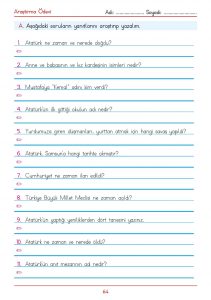 Araştırma Ödevi
Adı: Soyadı:
A. Aşağıdaki soruların yanıtlarını araştırıp yazalım.
1. Atatürk ne zaman ve nerede doğdu?
2. Anne ve babasının ve kız kardeşinin isimleri nedir?
3. Mustafa'ya "Kemal" adını kim verdi?
4. Atatürk'ün ilk gittiği okulun adı nedir?
5. Yurdumuza giren düşmanları, yurttan atmak için hangi savaş yapıldı?
6. Atatürk, Samsun'a hangi tarihte çıkmıştır?
7. Cumhuriyet ne zaman ilan edildi?
8. Türkiye Büyük Millet Meclisi ne zaman açıldı?
9. Atatürk'ün yaptığı yeniliklerden dört tanesini yazınız.
10. Atatürk ne zaman ve nerede öldü?
11. Atatürk'ün anıt mezarının adı nedir?
64